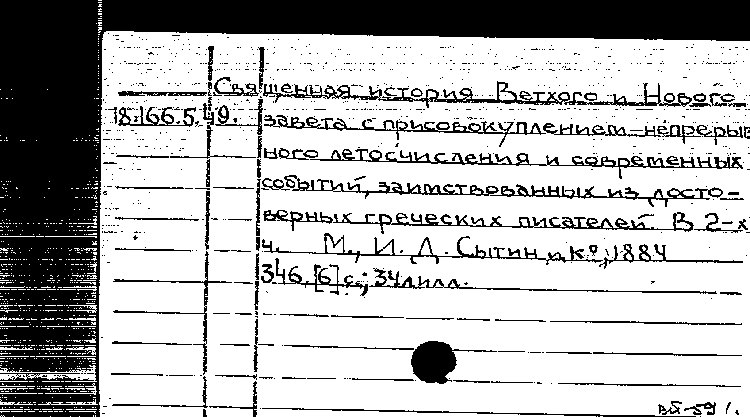 Священная история Ветхого и Нового
18.166.5.49. завета с присовокуплением непрерыв
ного летосчисления и современных
событий, заимствованных из досто-
верных греческих писателей. В 2-х
ч. М., И. Д. Сытин и Ко, 1884
346, [6] с.; 34 л илл.